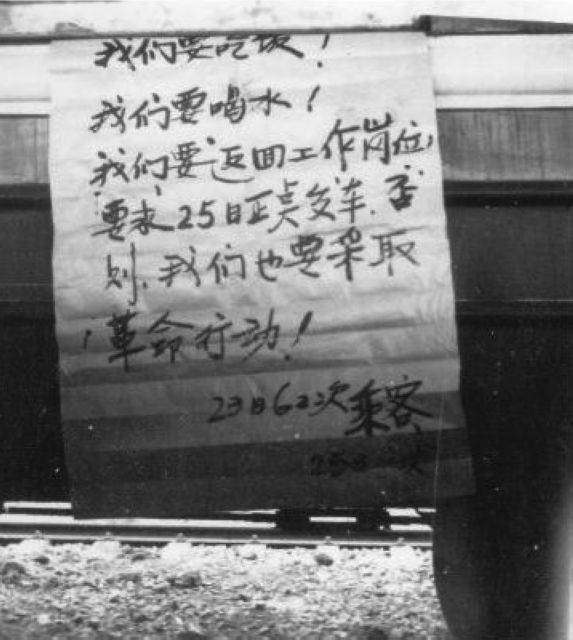 我们要吃饭！
我们要喝水！
我们要返回工作岗位，
要求25日正点发车，否
则，我们也要采取
革命行动！
23日62次乘客